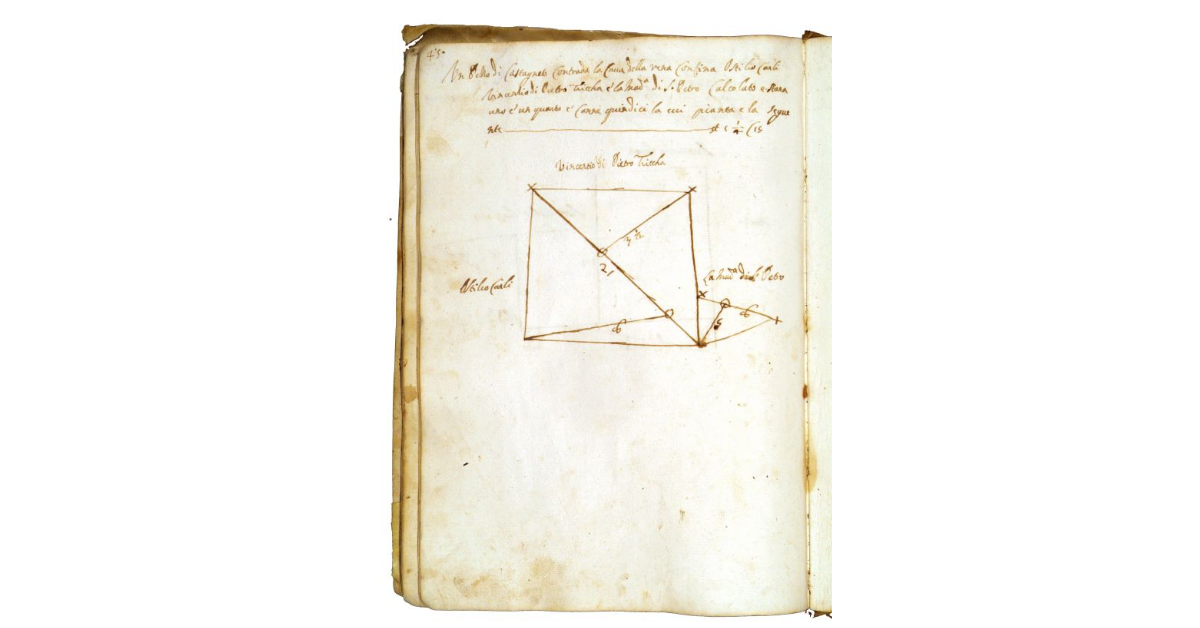 43.
Un Pezzo di Castagneto Contrada la Cava della vena Confina Ostilio Carli
Vincentio di Pietro Ticcha e la Mad.ª di S. Pietro Calcolato e stara
uno e un quarto e Canne quindici la cui pianta e la segue
nte st 1 1/4 C 15
Vincentio di Pietro Ticcha
3 1/2
21
Ostilio Carli
La Mad.ª di S. Pietro
6
5
6